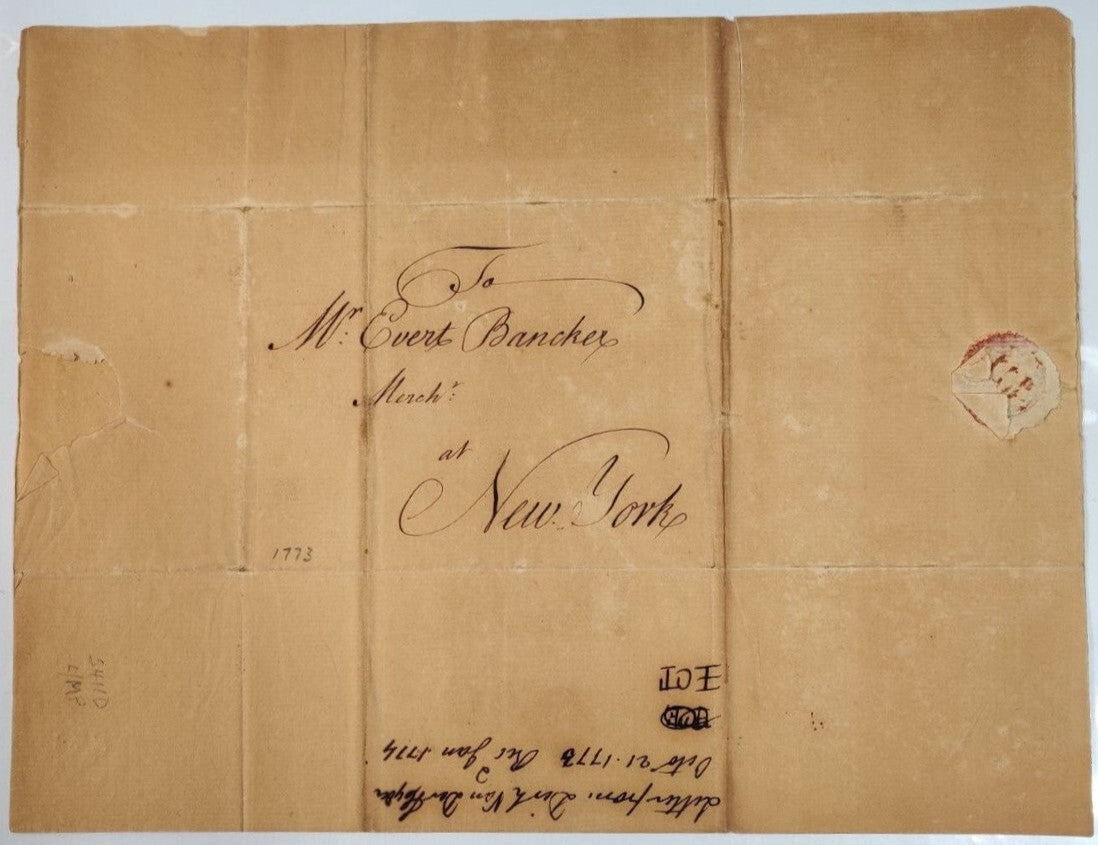 To
Mr. Evert Bancker
Mercht.
at
New York
1773
Letter from Dirk Van Der Heyden
Octo 21. 1773 Rec Jan 1774